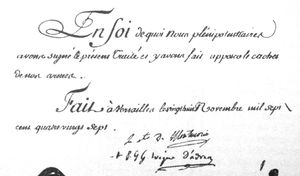 En foi de quoi Nous plénipotentiaires
avons signé le présent Traité et y avons fait apposer le cachet
de nos armes.
Fait à Versailles le vingt huit Novembre mil sept
cent quatre vingt sept.
De Montmorin
d'adran